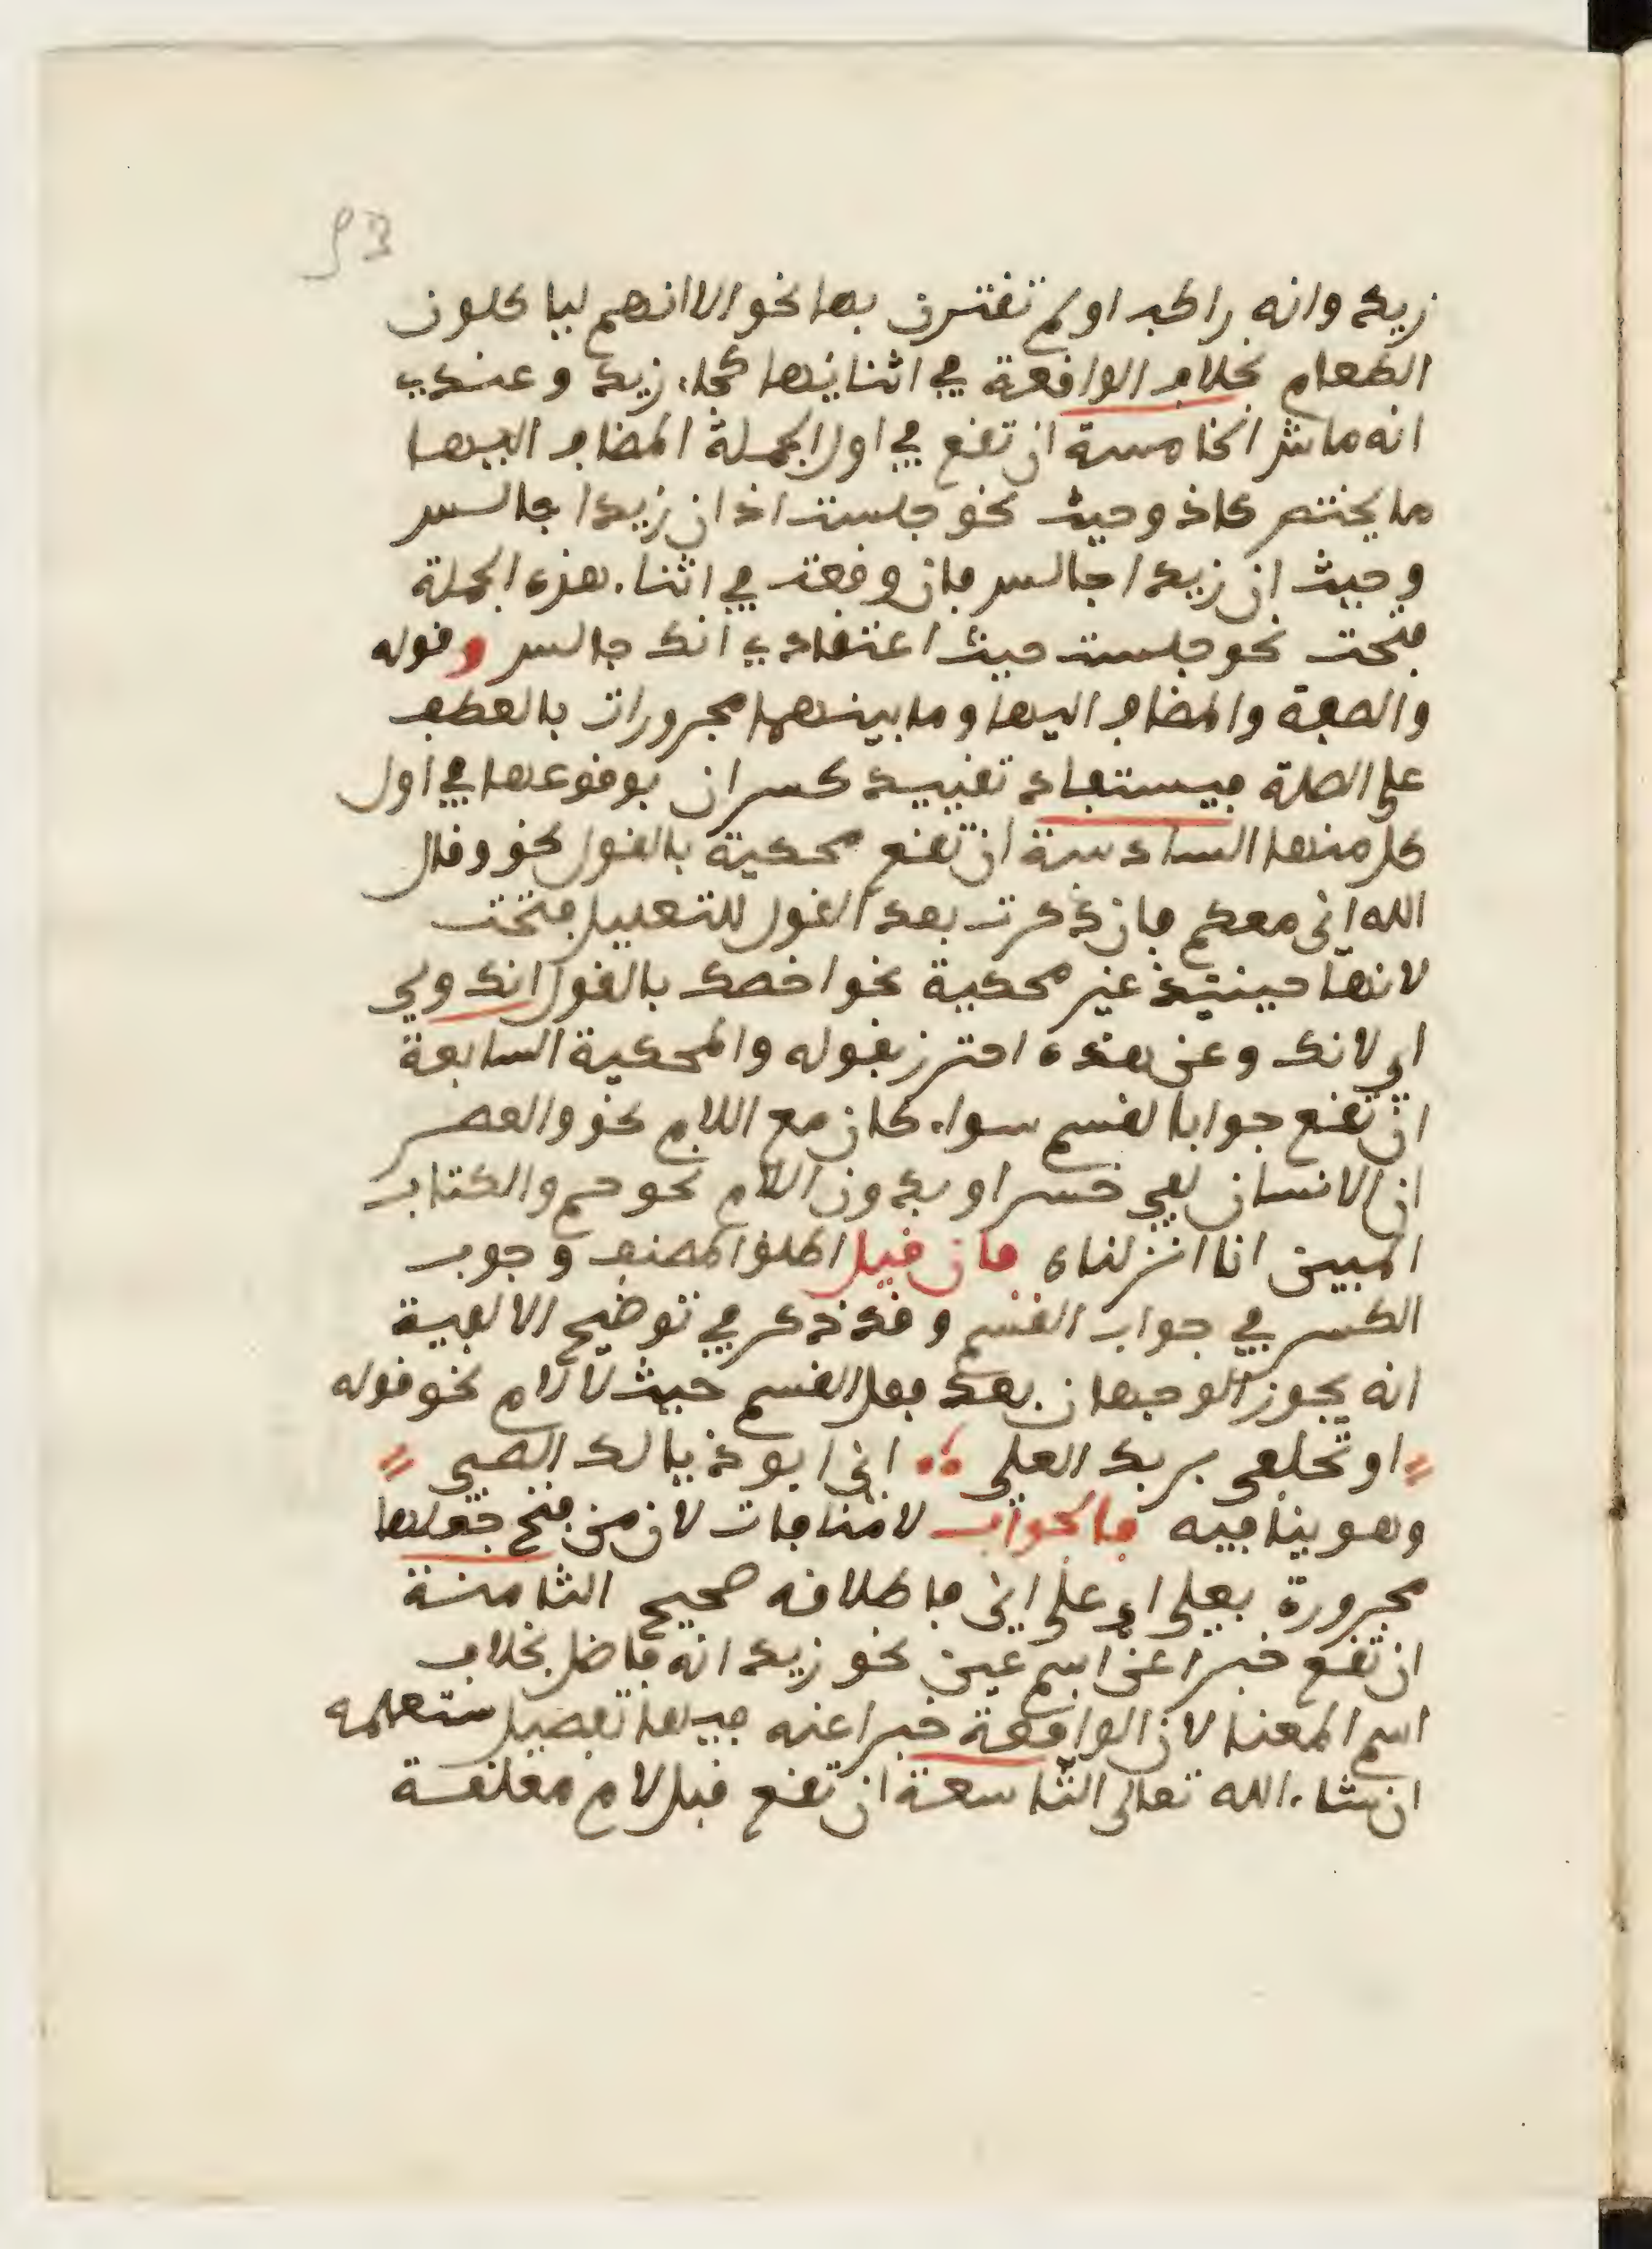 93
زيد وانه راكب او لم تقترن بها نحو الا انهم لياكلون
الطعام بخلاف الواقعة في اثنائها كجاء زيد وعندي
انه ماش الخامسة ان تقع في اول الجملة المضاف اليها
ما يختص كاذ وحيث نحو جلست اذ ان زيدا جالس
وحيث ان زيدا جالس فان وقعت في اثناء هذه الجملة
فتحت نحو جلست حيث اعتقادي انك جالس وقوله
والصفة والمضاف اليها وما بينهما مجرورات بالعطف
على الصلة فيستفاد تقييد كسر ان بوقوعها في اول
كل منها السادسة ان تقع محكية بالقول نحو وقال
الله اني معكم فان ذكرت بعد القول للتعليل فتحت
لانها حينئذ غير محكية نحو اخصك بالقول انك ولي
اي لانك وعن هذه احترز بقوله والمحكية السابعة
ان تقع جوابا لقسم سواء كان مع اللام نحو والعصر
ان الانسان لفي خسر او بدون اللام نحو حم والكتاب
المبين انا انزلناه فان قيل اطلق المصنف وجوب
الكسر في جواب القسم وقد ذكر في توضيح الالفية
انه يجوز الوجهان بعد فعل القسم حيث لا لام نحو قوله
او تحلفي بربك العلي اني ابو ذيالك الصبي
وهو ينافيه فالجواب لا منافات لان من فتح جعلها
مجرورة بعلى اي على اني فاطلاقه صحيح الثامنة
ان تقع خبرا عن اسم عين نحو زيد انه فاضل بخلاف
اسم المعنا لان الواقعة خبرا عنه فيها تفصيل ستعلمه
ان شاء الله تعالى التاسعة ان تقع قبل لام معلقة